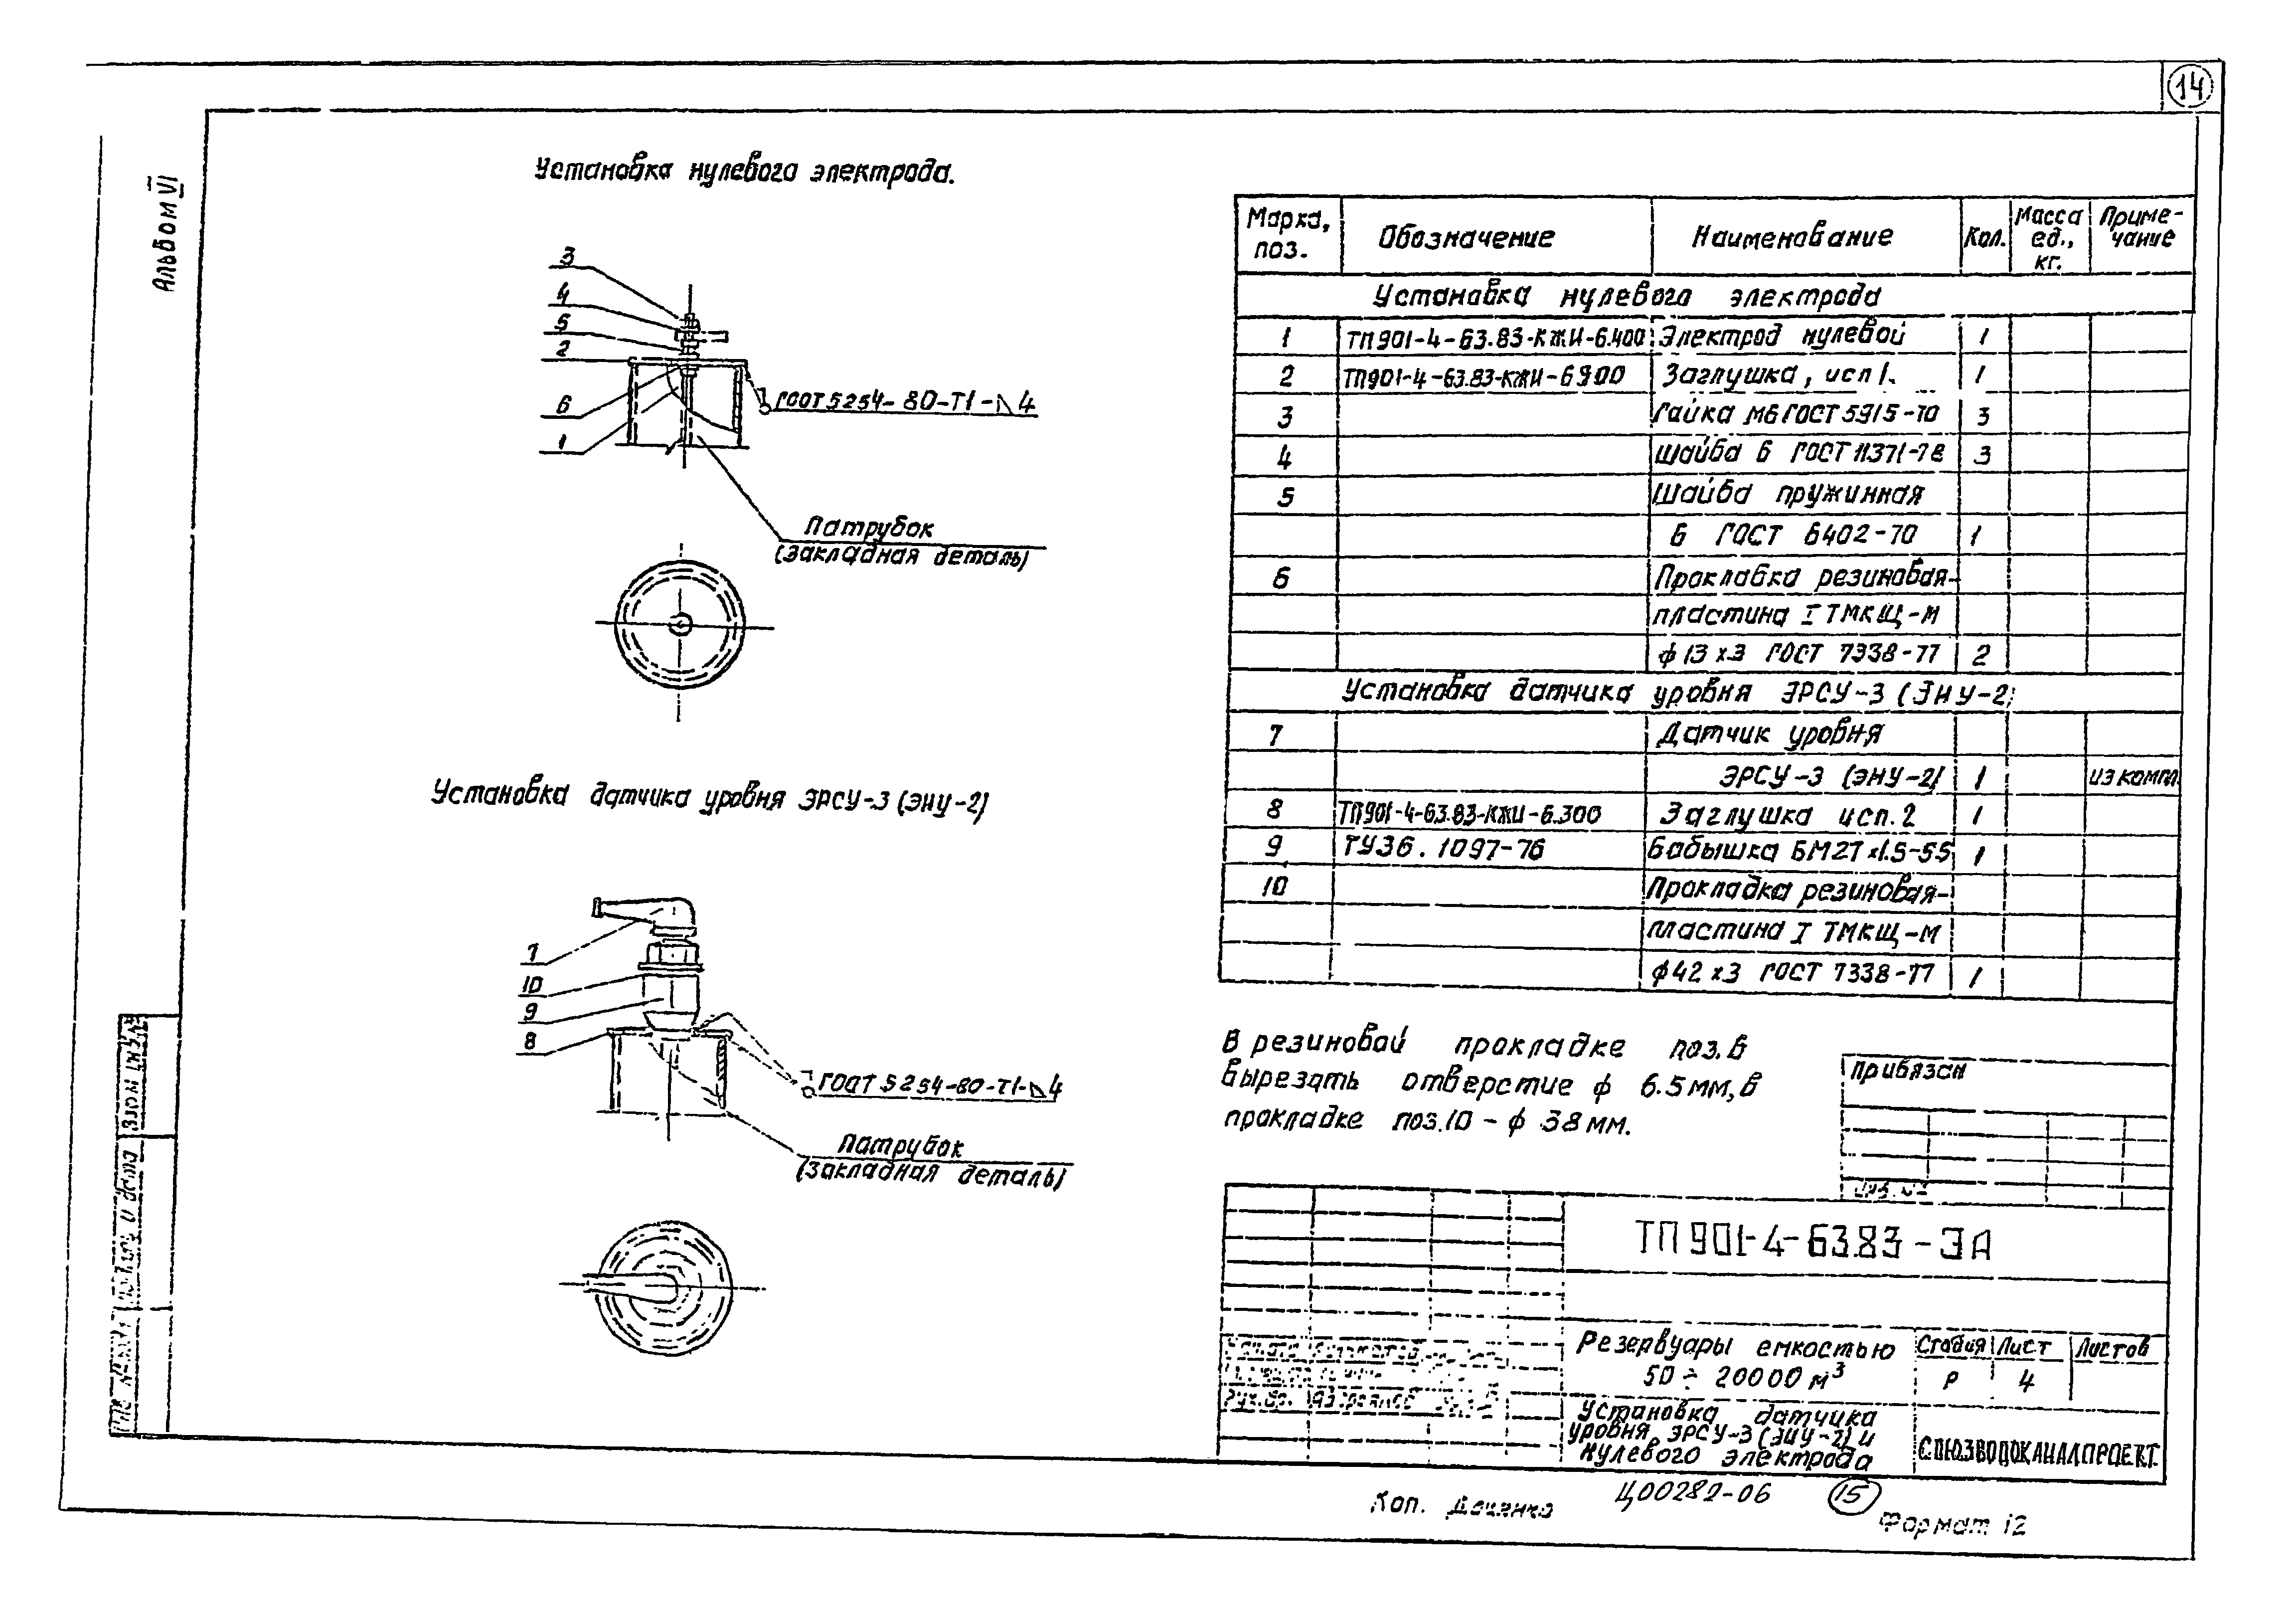 14
Альбом VI
Установка нулевого электрода.
3
4
5
2
6
1
ГОСТ 5254-80-Т1-⊿4
Патрубок
(закладная деталь)
Установка датчика уровня ЭРСУ-3 (ЭНУ-2)
7
10
9
8
ГОСТ 5254-80-Т1-⊿4
Патрубок
(закладная деталь)
Марка, поз. Обозначение Наименование Кол. Масса ед., кг. Приме-чание
Установка нулевого электрода
1 ТП901-4-63.83-КЖИ-6.400 Электрод нулевой 1
2 ТП901-4-63.83-КЖИ-6.300 Заглушка, исп 1. 1
3 Гайка М6 ГОСТ 5915-70 3
4 Шайба 6 ГОСТ 11371-78 3
5 Шайба пружинная
6 ГОСТ 6402-70 1
6 Прокладка резиновая-
пластина I ТМКЩ-М
ф 13 х3 ГОСТ 7338-77 2
Установка датчика уровня ЭРСУ-3 (ЭНУ-2)
7 Датчик уровня
ЭРСУ-3 (ЭНУ-2) 1 из компл.
8 ТП901-4-63.83-КЖИ-6.300 Заглушка исп. 2 1
9 ТУ36.1097-76 Бобышка БМ27х1.5-55 1
10 Прокладка резиновая-
пластина I ТМКЩ-М
ф42 х3 ГОСТ 7338-77 1
В резиновой прокладке поз. 6
вырезать отверстие ф 6.5 мм, в
прокладке поз. 10 - ф 38 мм.
Привязан
Инв. №
ТП 901-4-63.83-ЭА
Резервуары емкостью
50 ÷ 20000 м³
Стадия Лист Листов
Р 4
Установка датчика
уровня ЭРСУ-3 (ЭНУ-2) и
нулевого электрода
СОЮЗВОДОКАНАЛПРОЕКТ
Рук. бр.
Взам инв №
Подпись и дата
Инв № подл
Коп. Доценко
Ц00282-06
15
Формат 12